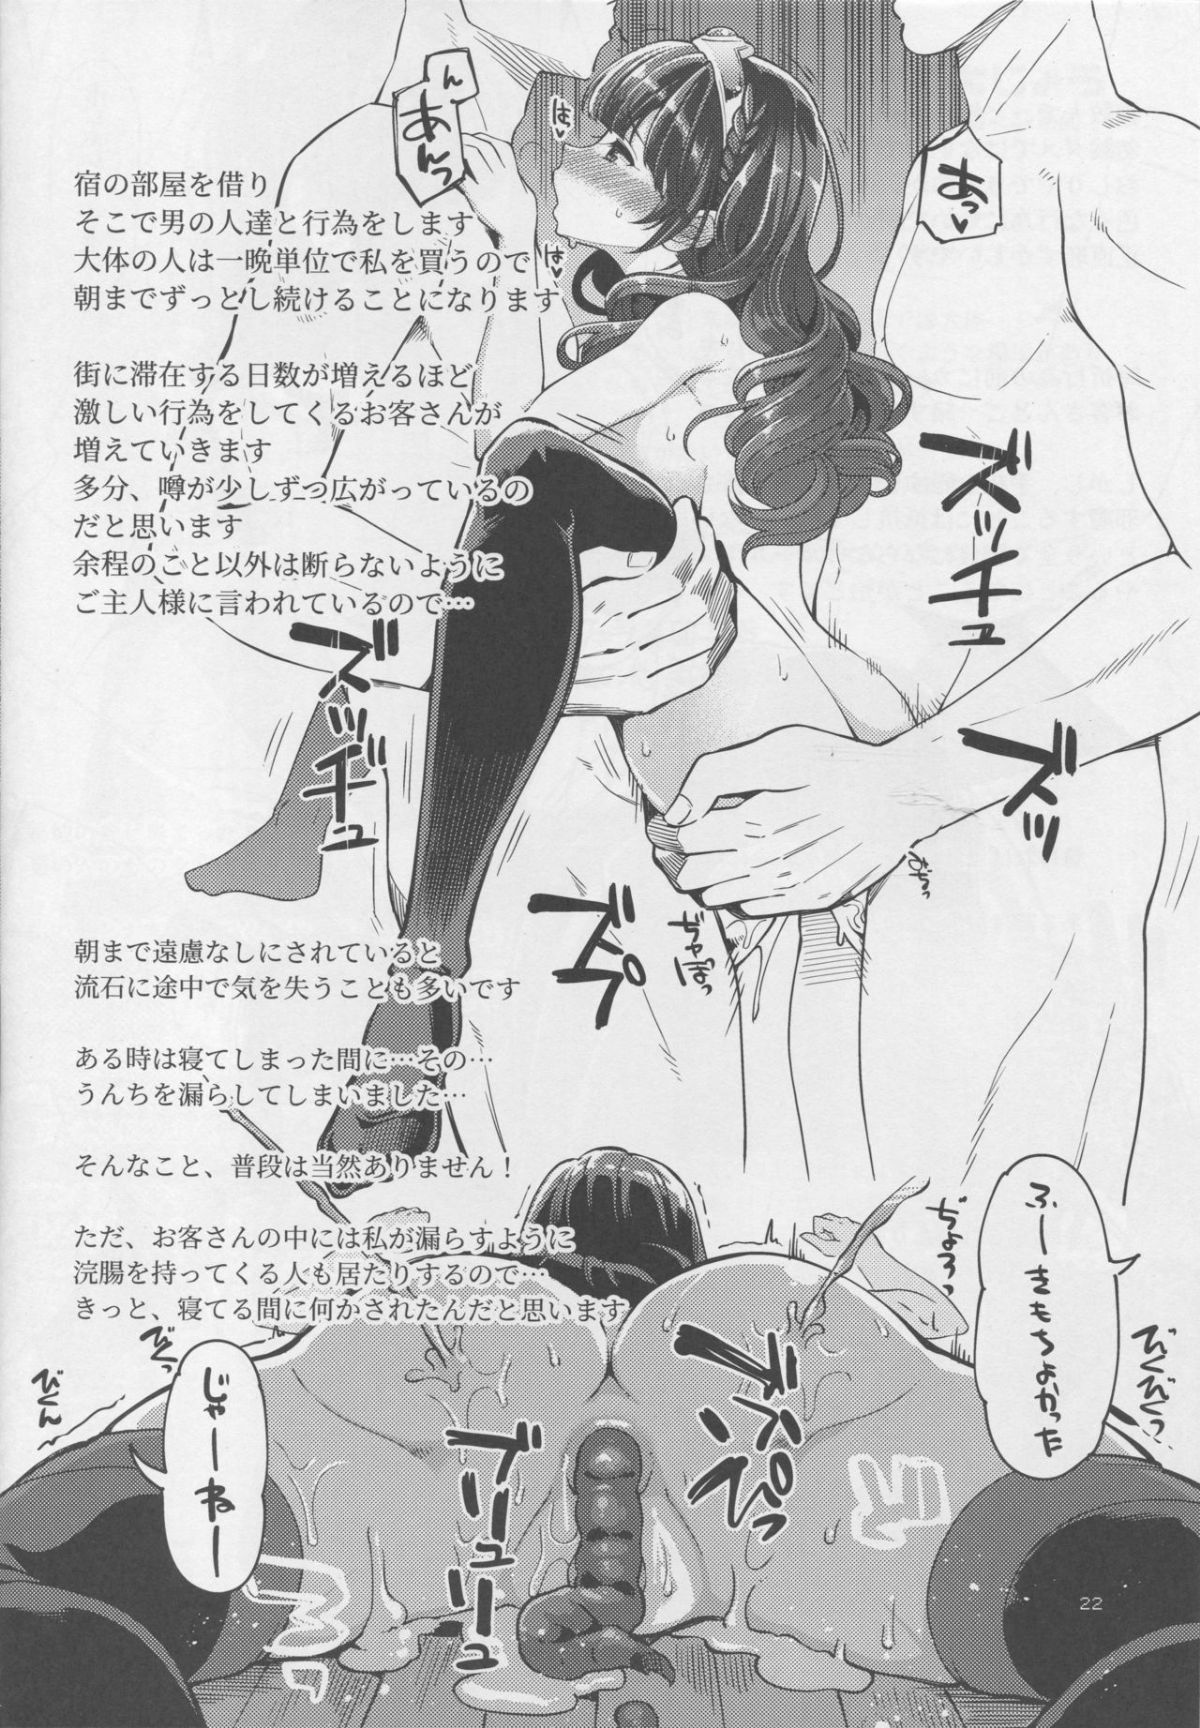 宿の部屋を借り
そこで男の人達と行為をします
大体の人は一晩単位で私を買うので
朝までずっとし続けることになります
街に滞在する日数が増えるほど
激しい行為をしてくるお客さんが
増えていきます
多分、噂が少しずつ広がっているの
だと思います
余程のこと以外は断らないように
ご主人様に言われているので…
朝まで遠慮なしにされていると
流石に途中で気を失うことも多いです
ある時は寝てしまった間に…その…
うんちを漏らしてしまいました…
そんなこと、普段は当然ありません！
ただ、お客さんの中には私が漏らすように
浣腸を持ってくる人も居たりするので…
きっと、寝てる間に何かされたんだと思います
ん
あんっ
は♥
は♥
あっ♥
ズッチュ
ズッヂュ
ズッ
ズプ
ぢゅぽっ
ふーきもちよかった
ぢょろっ
びくびくっ
びくっ
びくん
じゃーねー
ブリュリュ
22